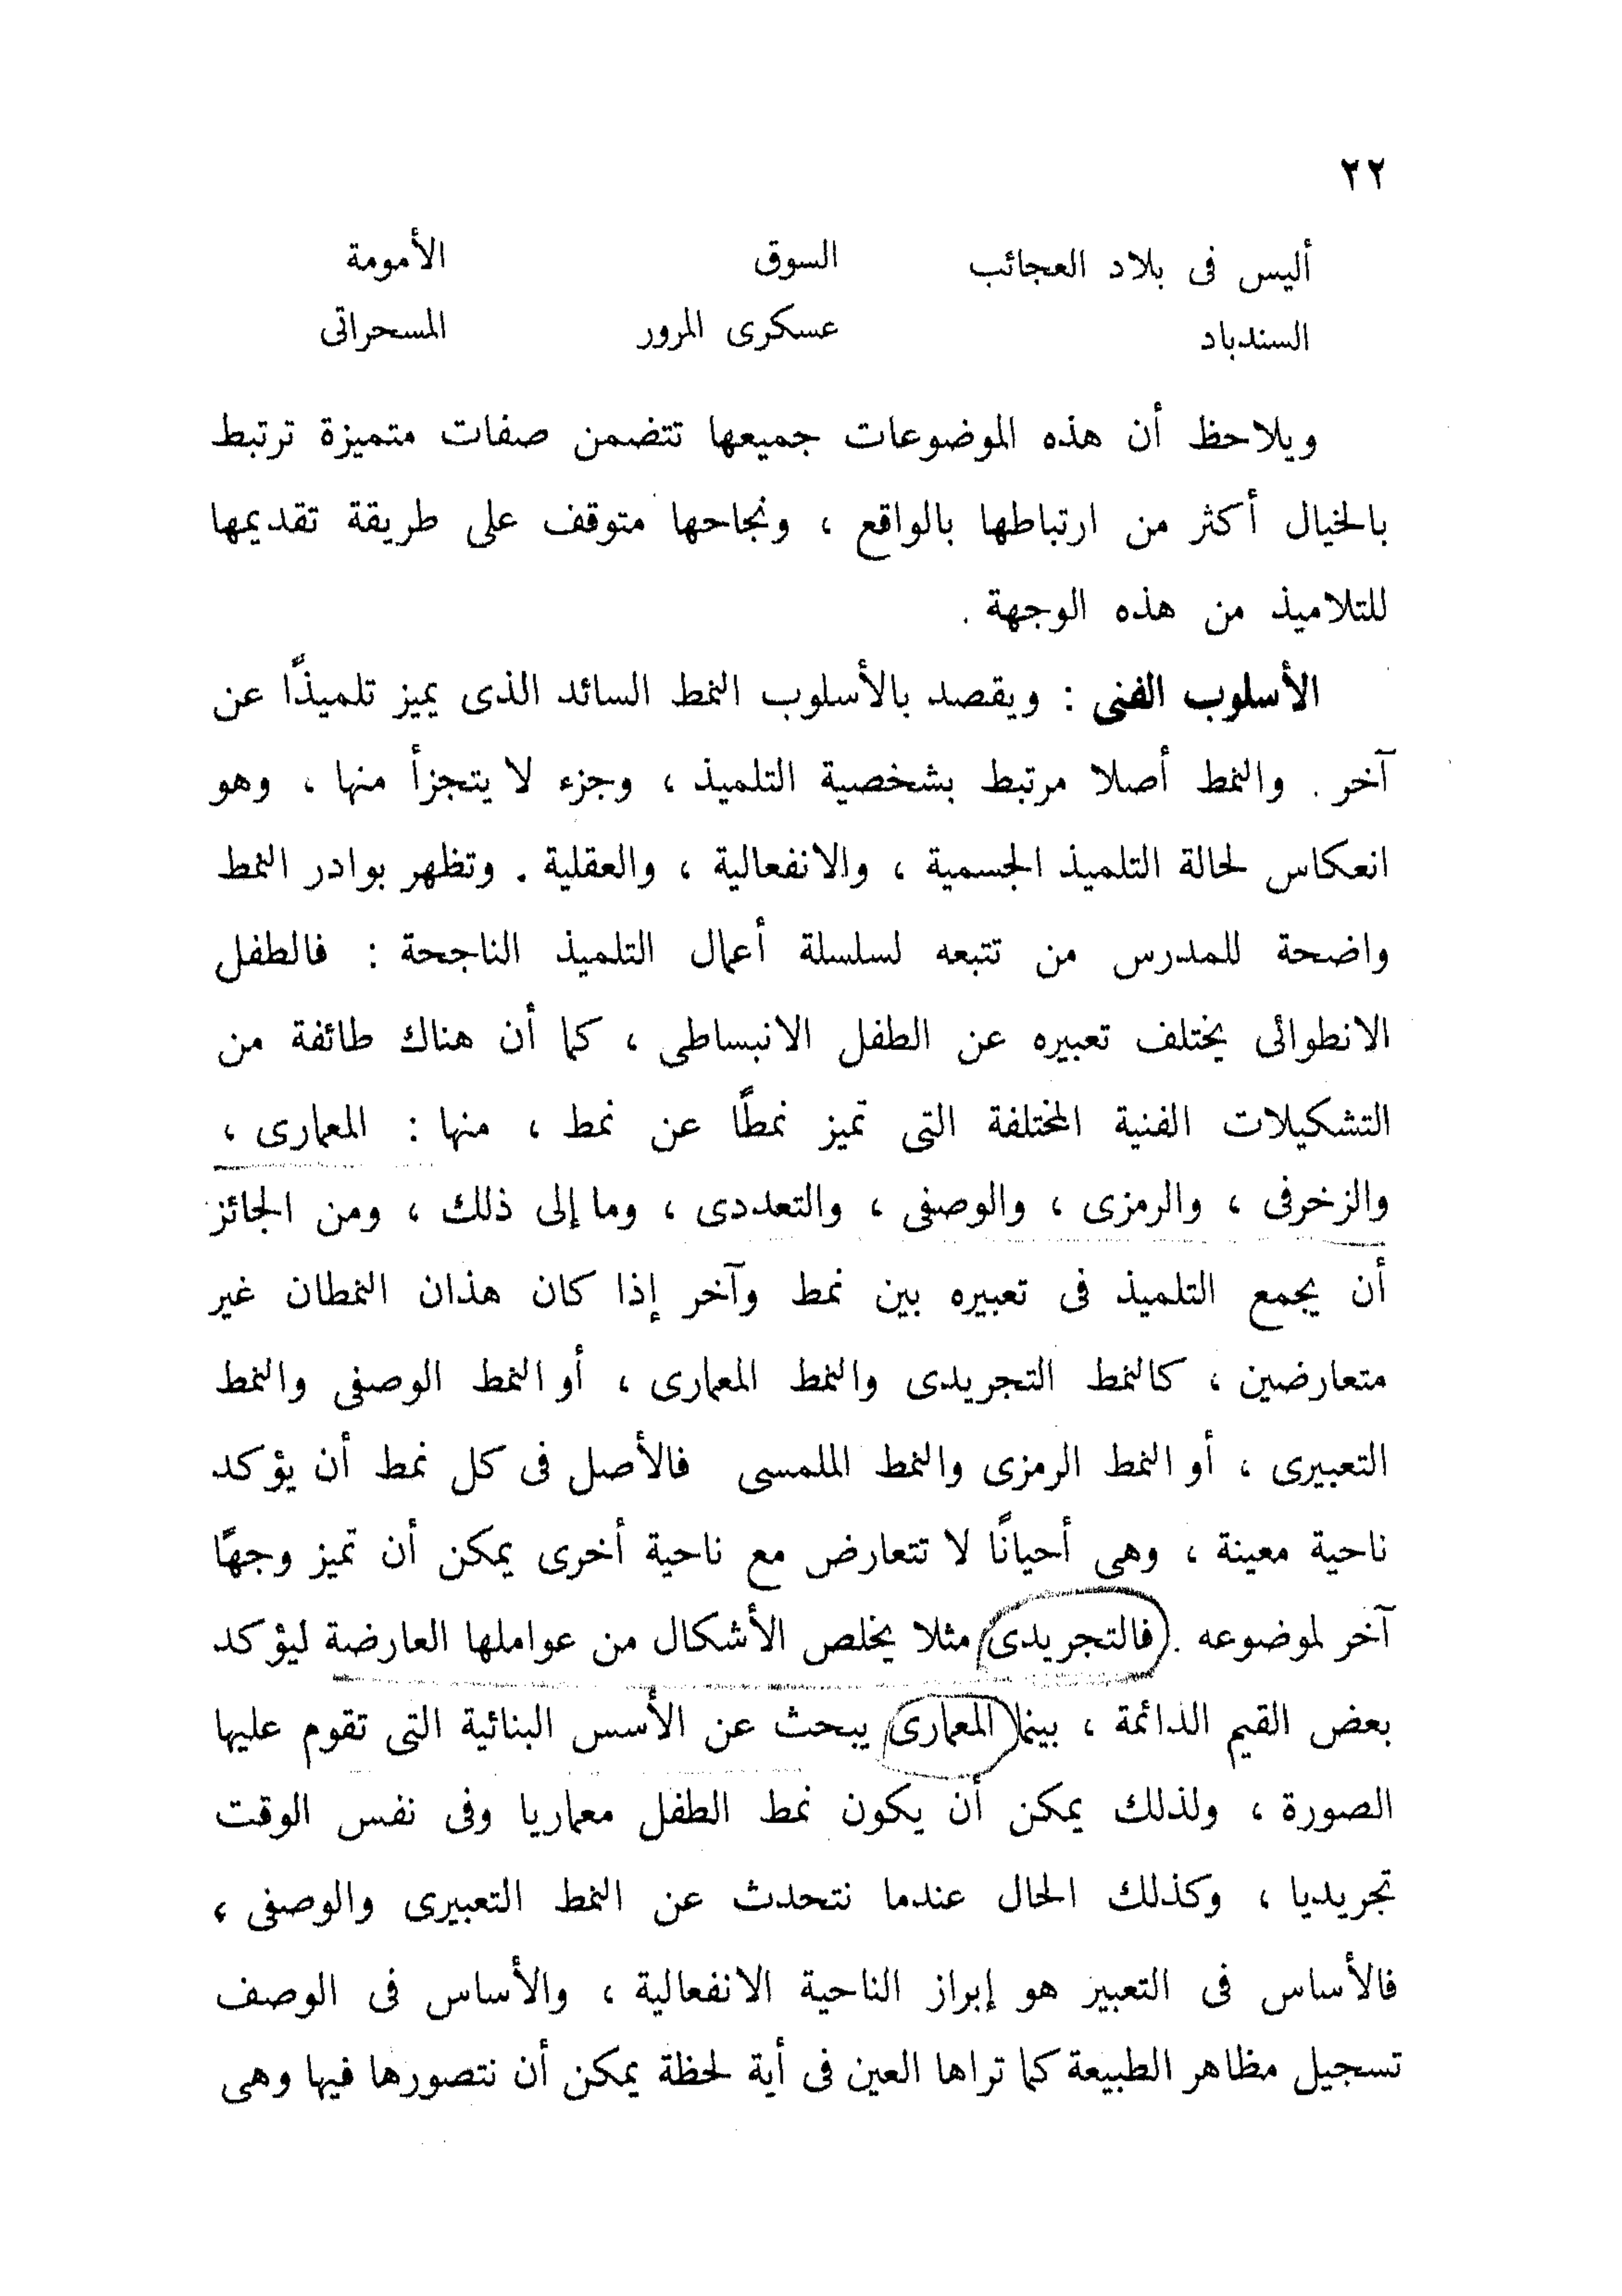 ٢٢
أليس فى بلاد العجائب السوق الأمومة
السندباد عسكرى المرور المسحراتى
ويلاحظ أن هذه الموضوعات جميعها تتضمن صفات متميزة ترتبط
بالخيال أكثر من ارتباطها بالواقع ، ونجاحها متوقف على طريقة تقديمها
للتلاميذ من هذه الوجهة .
الأسلوب الفنى : ويقصد بالأسلوب النمط السائد الذى يميز تلميذًا عن
آخر . والنمط أصلا مرتبط بشخصية التلميذ ، وجزء لا يتجزأ منها ، وهو
انعكاس لحالة التلميذ الجسمية ، والانفعالية ، والعقلية . وتظهر بوادر النمط
واضحة للمدرس من تتبعه لسلسلة أعمال التلميذ الناجحة : فالطفل
الانطوائى يختلف تعبيره عن الطفل الانبساطى ، كما أن هناك طائفة من
التشكيلات الفنية المختلفة التى تميز نمطًا عن نمط ، منها : المعمارى ،
والزخرفى ، والرمزى ، والوصفى ، والتعددى ، وما إلى ذلك ، ومن الجائز
أن يجمع التلميذ فى تعبيره بين نمط وآخر إذا كان هذان النمطان غير
متعارضين ، كالنمط التجريدى والنمط المعمارى ، أو النمط الوصفى والنمط
التعبيرى ، أو النمط الرمزى والنمط الملمسى فالأصل فى كل نمط أن يؤكد
ناحية معينة ، وهى أحيانًا لا تتعارض مع ناحية أخرى يمكن أن تميز وجهًا
آخر لموضوعه . فالتجريدى مثلا يخلص الأشكال من عواملها العارضة ليؤكد
بعض القيم الدائمة ، بينما المعمارى يبحث عن الأسس البنائية التى تقوم عليها
الصورة ، ولذلك يمكن أن يكون نمط الطفل معماريا وفى نفس الوقت
تجريديا ، وكذلك الحال عندما نتحدث عن النمط التعبيرى والوصفى ،
فالأساس فى التعبير هو إبراز الناحية الانفعالية ، والأساس فى الوصف
تسجيل مظاهر الطبيعة كما تراها العين فى أية لحظة يمكن أن نتصورها فيها وهى